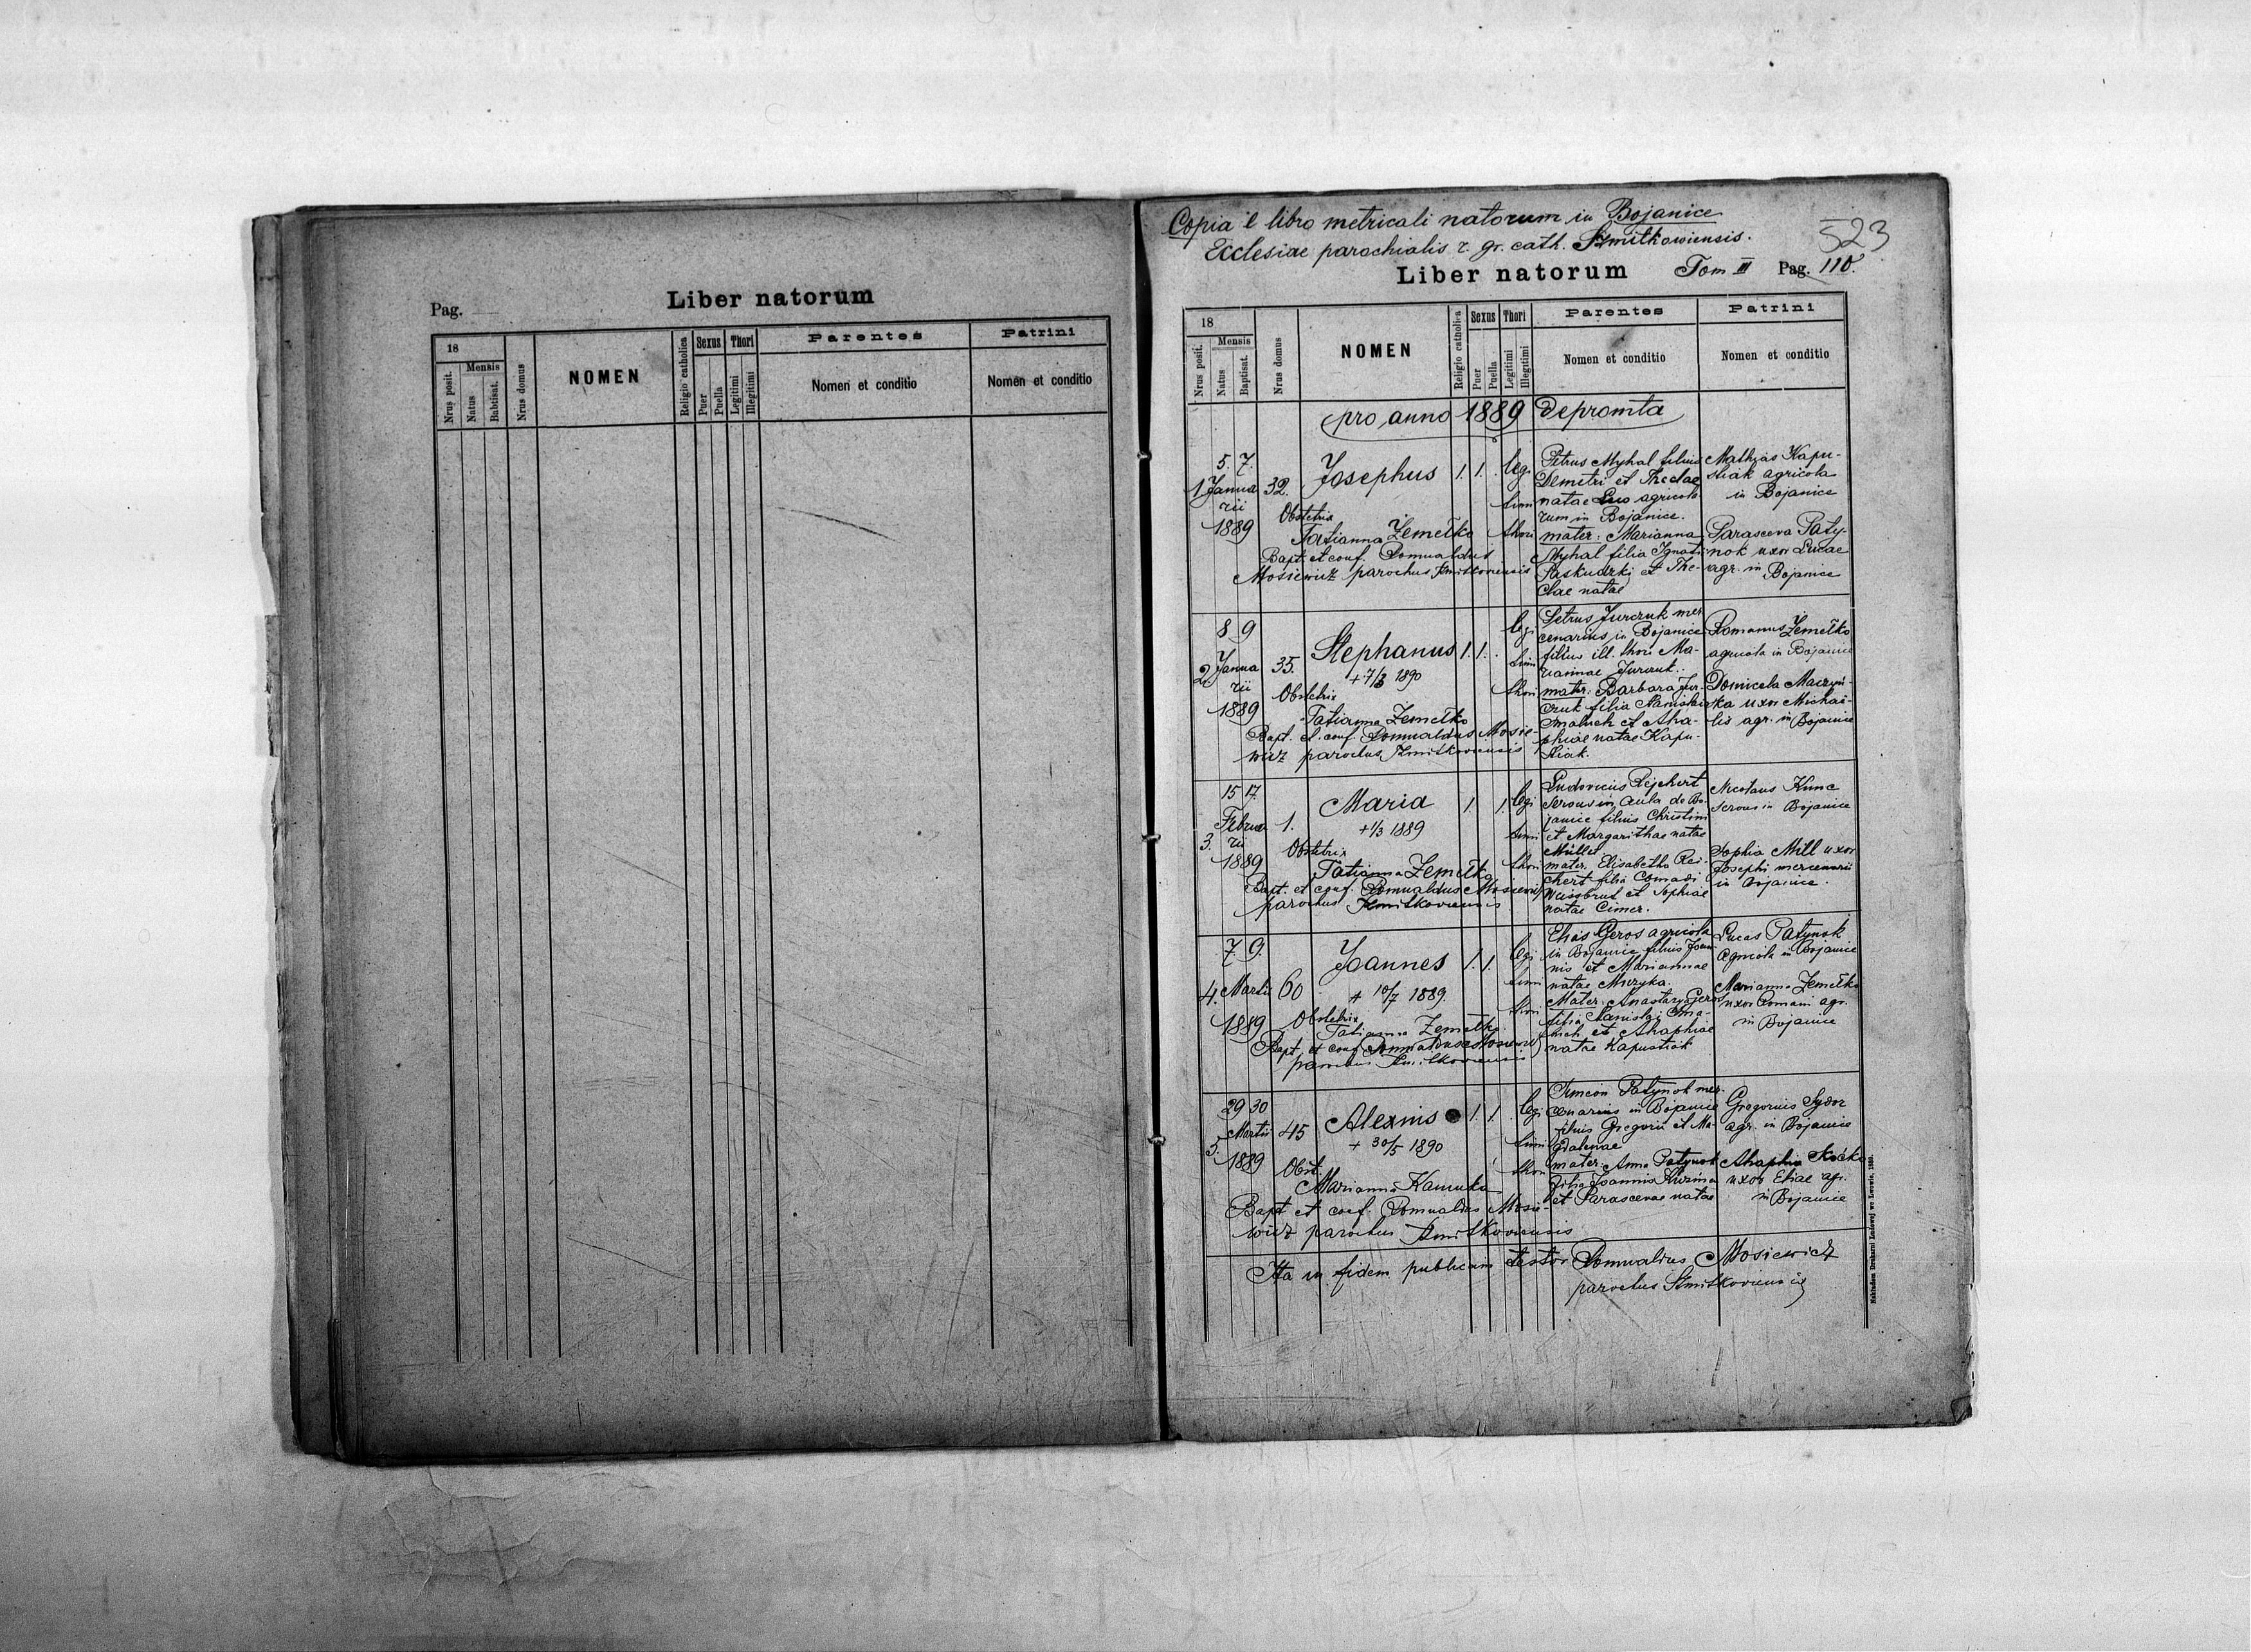 Pag.
Liber natorum
18
Mensis
Nrus posit.
Natus
Babtisat.
Nrus domus
NOMEN
Religio catholica
Sexus
Puer
Puella
Thori
Legitimi
Illegitimi
Parentes
Nomen et conditio
Patrini
Nomen et conditio
Copia e libro metricali natorum in Bojanice
Ecclesiae parochialis r. gr. cath. Żmitkowiensis.
523
Liber natorum Tom III Pag. 110.
18
Mensis
Nrus posit.
Natus
Baptisat.
Nrus domus
NOMEN
Religio catholica
Sexus
Puer
Puella
Thori
Legitimi
Illegitimi
Parentes
Nomen et conditio
Patrini
Nomen et conditio
pro anno 1889 depromta
5. 7.
1 Janua
rii
1889
32.
Josephus
1. 1.
legi
timi
thori
Obstetrix
Tatianna Zemełko
Bapt. et conf. Romualdus
Mosiewicz parochus Żmitkoviensis
Petrus Myhal filius
Demetri et Theclae
natae agricola
rum in Bojanice.
mater: Marianna
Myhal filia Ignati
Paskudzki et The-
clae natae
Mathias Kapu-
stiak agricola
in Bojanice
Parasceva Paty-
nok uxor Lucae
agr. in Bojanice
8 9
2. Janua
rii
1889
35.
Stephanus
+ 7/3 1890
1. 1.
legi
timi
thori
Obstetrix
Tatianna Zemełko
Bapt. et conf. Romualdus Mosie-
wicz parochus Żmitkoviensis
Petrus Jurczuk mer
cenarius in Bojanice
filius ill. thori Ma-
riannae Jurczuk.
mater: Barbara Jur-
czuk filia Stanislai
Smaluch et Aha-
phiae natae Kapu-
stiak.
Romanus Zemełko
agricola in Bojanice
Domicela Maczyń-
ska uxor Michaë-
lis agr. in Bojanice
15 17.
3. Februa
rii
1889
1.
Maria
+ 1/3 1889
1. 1.
legi
timi
thori
Obstetrix
Tatianna Zemełko
Bapt. et conf. Romualdus Mosiewicz
parochus Żmitkoviensis
Ludovicus Rejchert
servus in aula de Bo-
janice filius Christini
et Margarithae natae
Müller
mater. Elisabetha Rei-
chert filia Conradi
Weissbrut et Sophiae
natae Cimer.
Nicolaus Kunc
servus in Bojanice
Sophia Mill uxor
Josephi mercenarii
in Bojanice.
7 9.
4. Martii
1889
60
Joannes
+ 10/7 1889.
1. 1.
legi
timi
thori
Obstetrix
Tatianna Zemełko
Bapt. et conf. Romualdus Mosiewicz
parochus Żmitkoviensis
Elias Geros agricola
in Bojanice filius Joan-
nis et Mariannae
natae Muzyka.
Mater: Anastasia Geros
filia Stanislai Sma-
luch et Ahaphiae
natae Kapustiak
Lucas Patynok
agricola in Bojanice
Marianna Zemełko
uxor Romani agr.
in Bojanice
29 30
5. Martii
1889
45
Alexius
+ 30/5 1890
1. 1.
legi
timi
thori
Obst.
Marianna Kamuka
Bapt et conf. Romualdus Mosie-
wicz parochus Żmitkoviensis
Simeon Patynok mer-
cenarius in Bojanice
filius Gregorii et Ma-
gdalenae
mater: Anna Patynok
filia Joannis Kuźma
et Parascevae natae
Gregorius Sydor
agr. in Bojanice
Ahaphia
uxor Eliae agr.
in Bojanice
Ita in fidem publicam testor Romualdus Mosiewicz
parochus Żmitkoviensis
Nakładem Drukarni Ludowej we Lwowie, 1889.